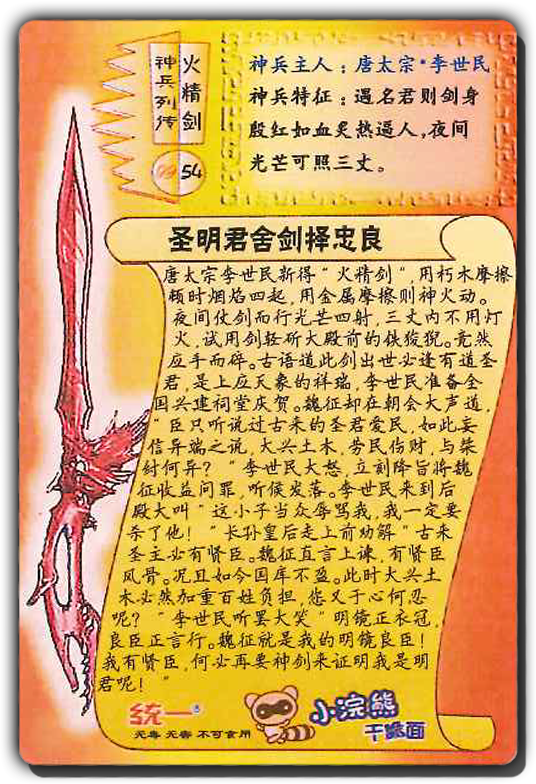 神兵列传
火精剑
54
神兵主人:唐太宗·李世民
神兵特征:遇名君则剑身
殷红如血炙热逼人,夜间
光芒可照三丈。
圣明君舍剑择忠良
唐太宗李世民新得"火精剑",用朽木摩擦
顿时烟焰四起,用金属摩擦则神火动。
夜间仗剑而行光芒四射,三丈内不用灯
火,试用剑轻斫大殿前的铁狻猊。竟然
应手而碎。古语道此剑出世必逢有道圣
君,是上应天象的祥瑞,李世民准备全
国兴建祠堂庆贺。魏征却在朝会大声道,
"臣只听说过古来的圣君爱民,如此妄
信异端之说,大兴土木,劳民伤财,与桀
纣何异?"李世民大怒,立刻降旨将魏
征收益问罪,听候发落。李世民来到后
殿大叫"这小子当众辱骂我,我一定要
杀了他!"长孙皇后走上前劝解"古来
圣主必有贤臣。魏征直言上谏,有贤臣
风骨。况且如今国库不盈。此时大兴土
木必然加重百姓负担,您又于心何忍
呢?"李世民听罢大笑"明镜正衣冠,
良臣正言行。魏征就是我的明镜良臣!
我有贤臣,何必再要神剑来证明我是明
君呢!"
统一®
无毒 无害 不可食用
小浣熊
干脆面